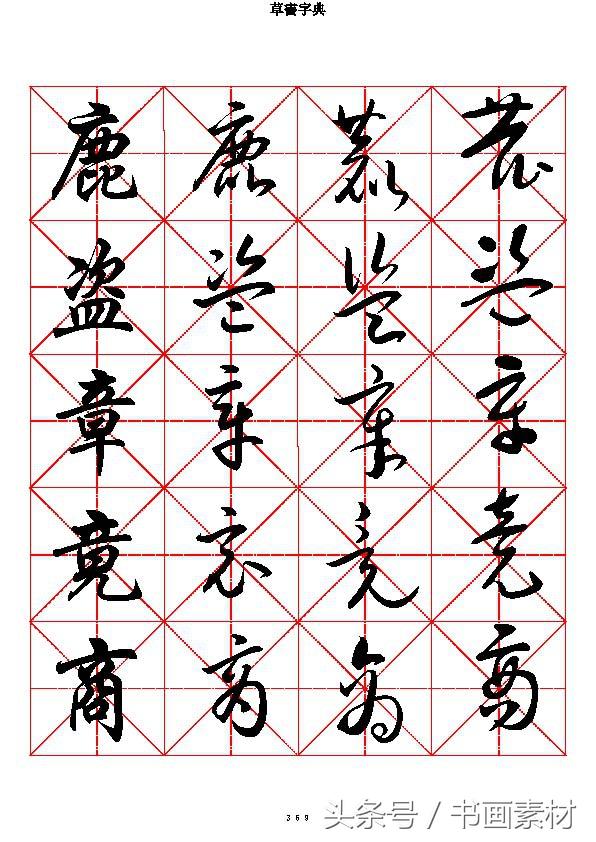 草書字典
鹿 鹿 鹿 鹿
盗 盗 盗 盗
章 章 章 章
竟 竟 竟 竟
商 商 商 商
369
头条号 / 书画素材